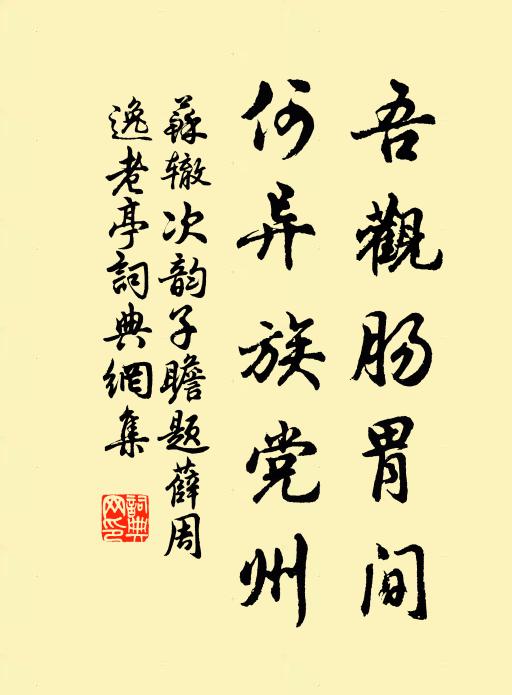 吾觀肠胃间
何异族党州
蘇辙次韵子瞻题薛周
逸老亭詞典網集
詞典网印